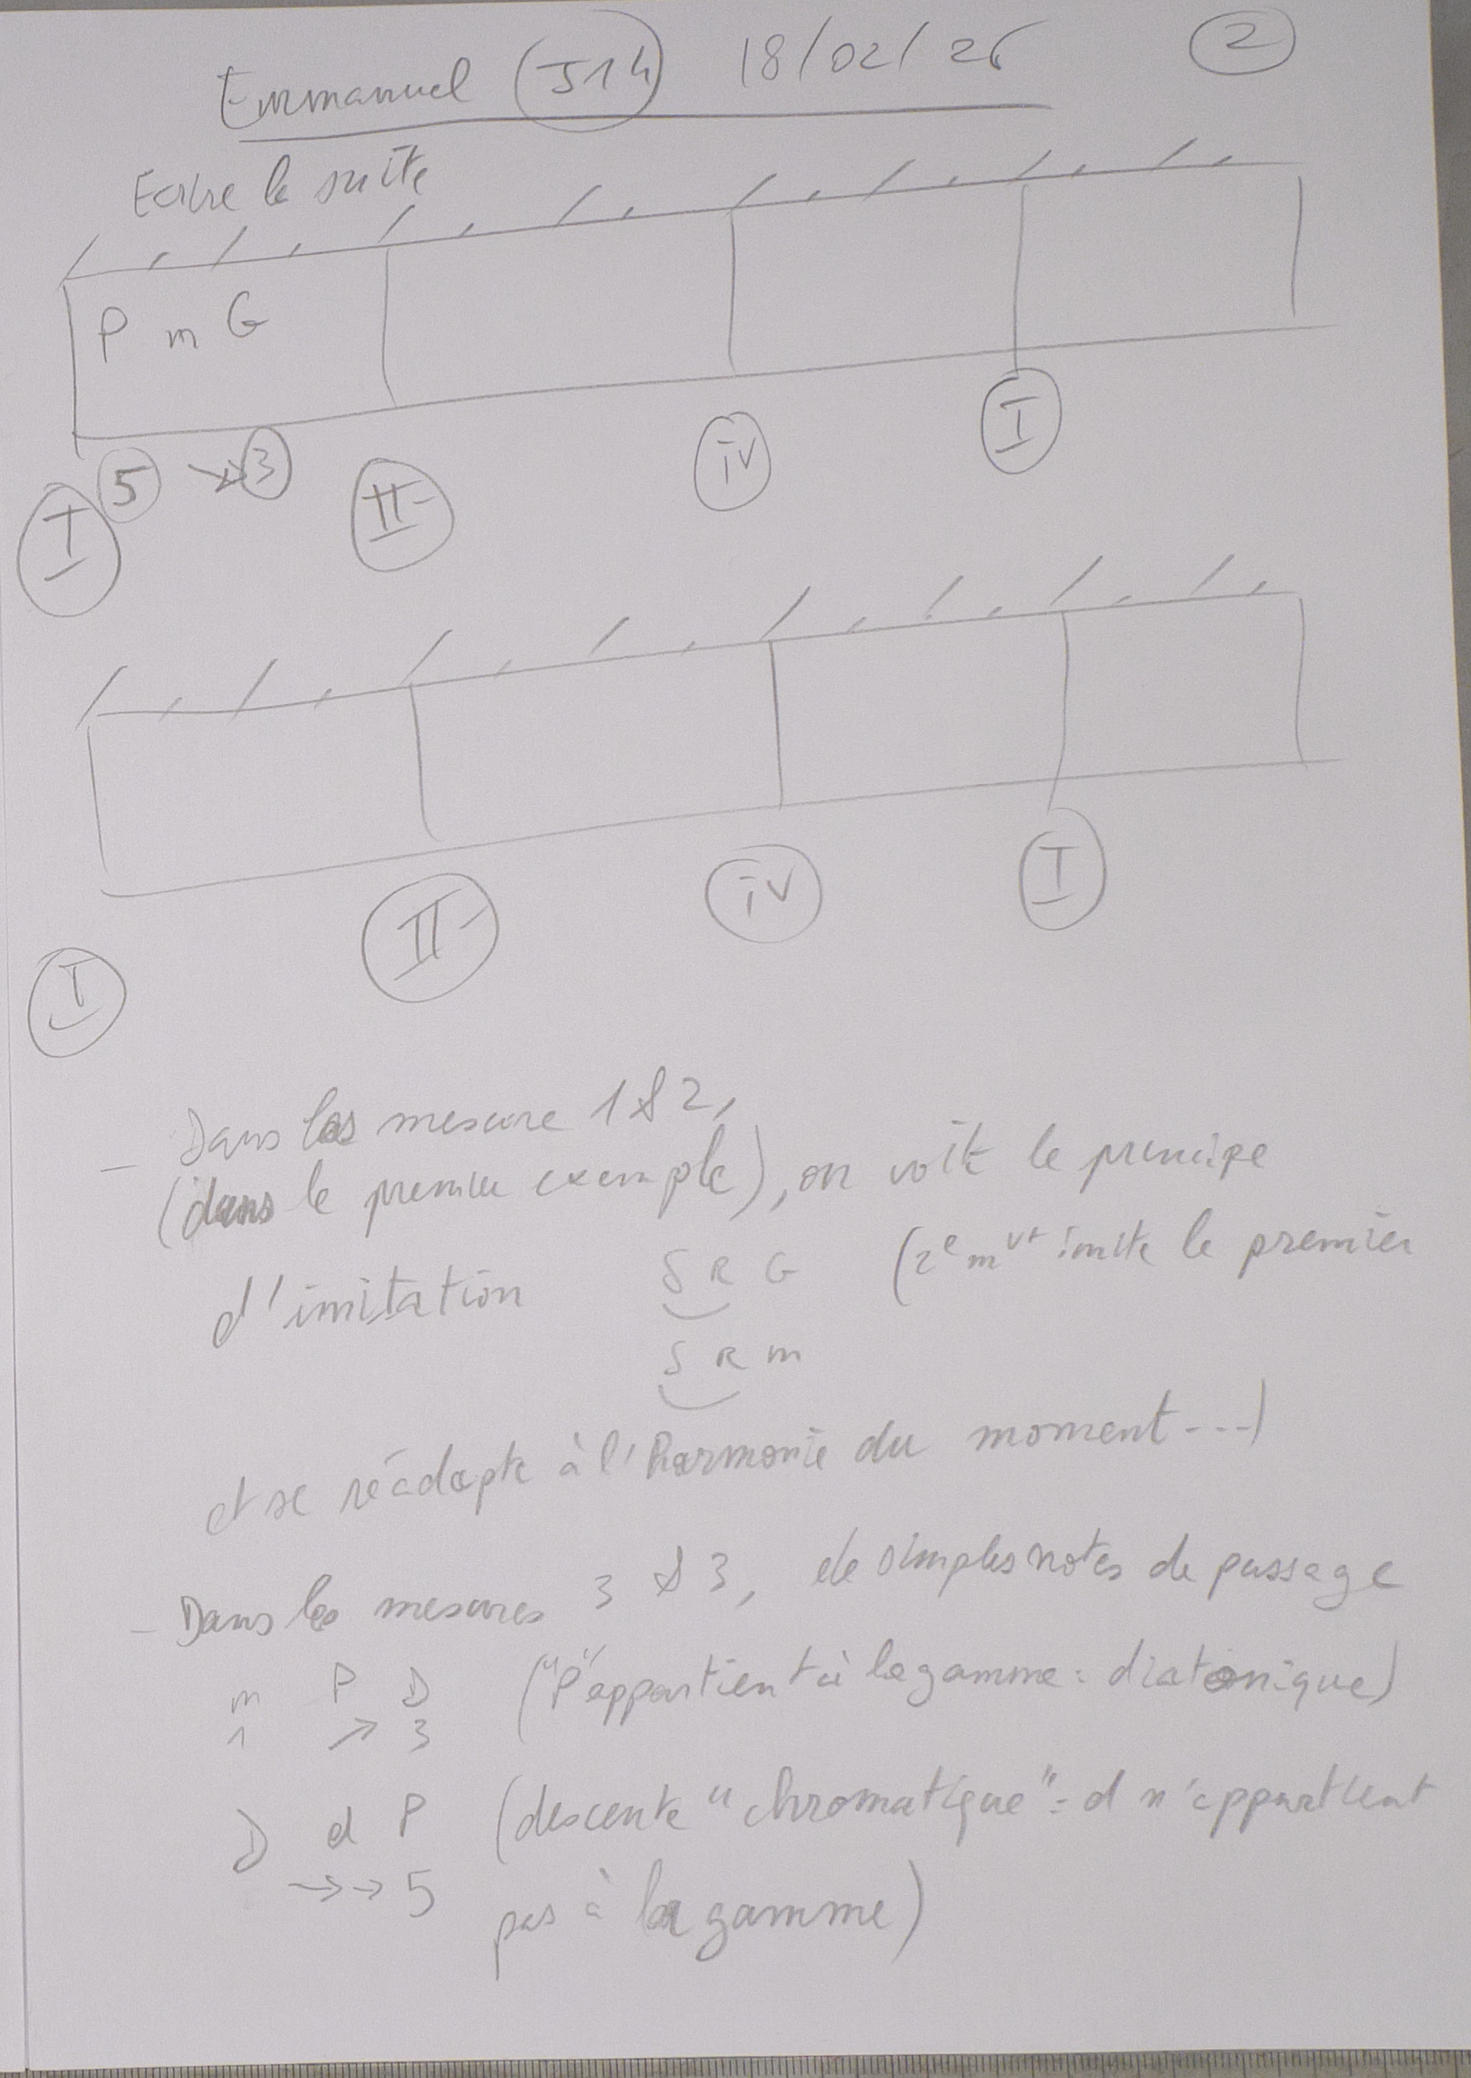 Emmanuel (J14) 18/02/26 2
Ecrire la suite
P m G
I 5 → 3 II- iv I
I II- iv I
- Dans les mesure 1 & 2,
(dans le premier exemple), on voit le principe
d'imitation S R G (2e mvt imite le premier
S R m
et se réadapte à l'harmonie du moment ---)
- Dans les mesures 3 & 3, de simples notes de passage
m P D ("P" appartient à la gamme : diatonique)
1 ↗ 3
D d P (descente "chromatique" = d n'appartient
→→ 5 pas à la gamme)